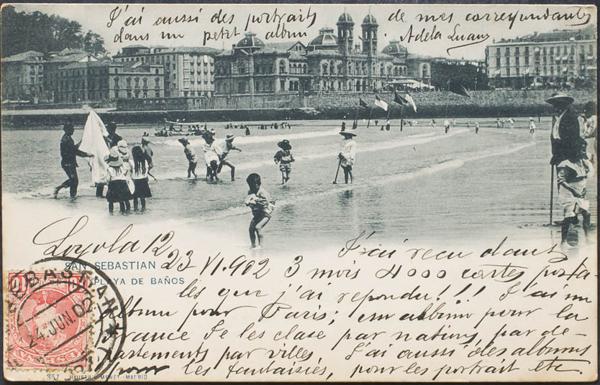 J'ai aussi des portraits de mes correspondants
dans un petit album Adela
Loyola 12
SAN SEBASTIAN
PLAYA DE BAÑOS
23 VI 902
J'ai recu dans
3 mois 4000 cartes posta-
les que j'ai repondu!!! J'ai un
album pour Paris; un album pour la
France Je les clase par nations, par de-
partements par villes. J'ai aussi des albums
pour les fantaisies, pour les portrait etc.
SEBASTIAN
24 JUN 02